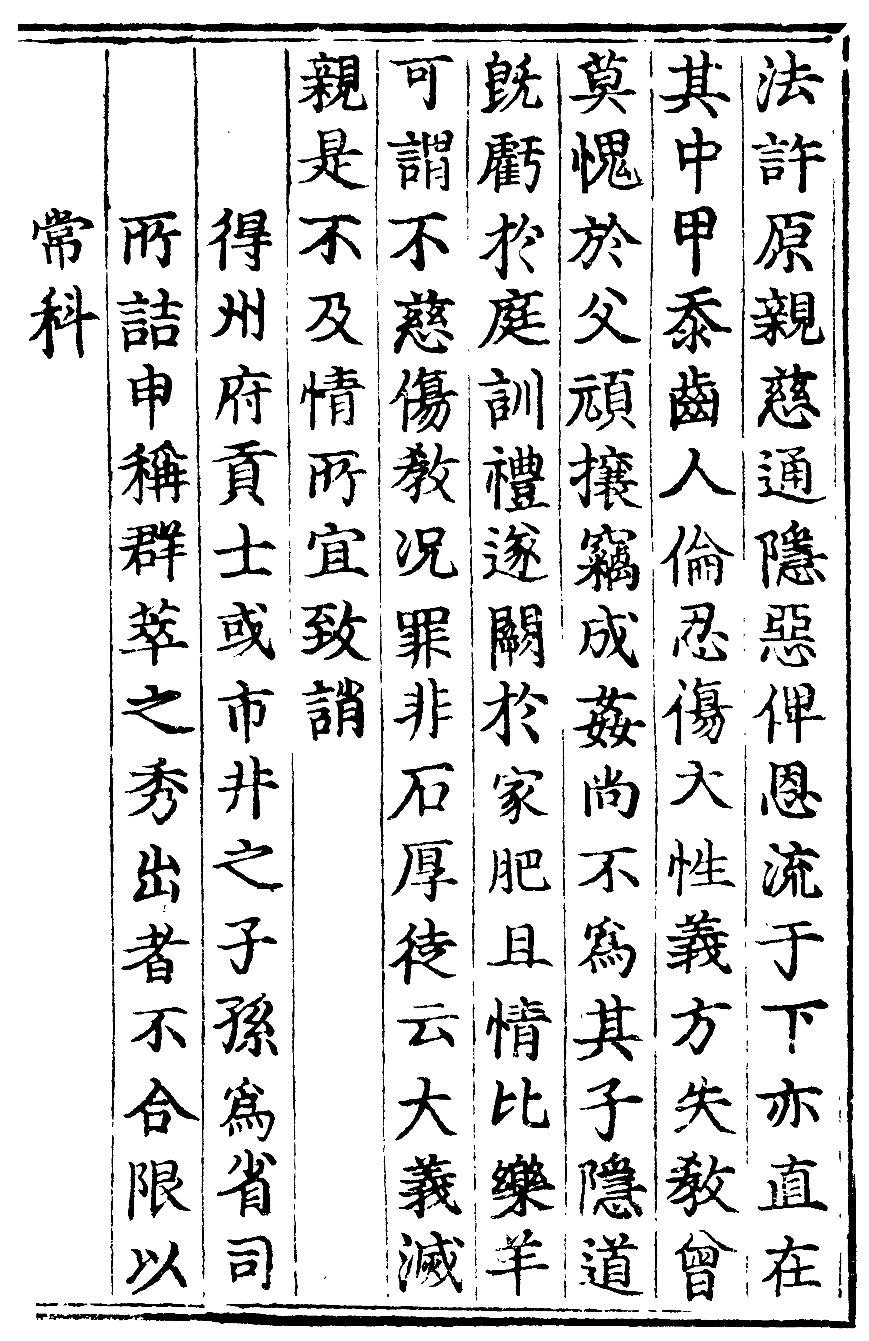 法許原親慈通隱惡俾恩流于下亦直在
其中甲忝齒人倫忍傷大性義方失教曾
莫愧於父頑攘竊成姦尚不為其子隱道
旣虧於庭訓禮遂闕於家肥且情比樂羊
可謂不慈傷教况罪非石厚徒云大義滅
親是不及情所宜致誚
得州府貢士或市井之子孫為省司
所詰申稱群萃之秀出者不合限以
常科